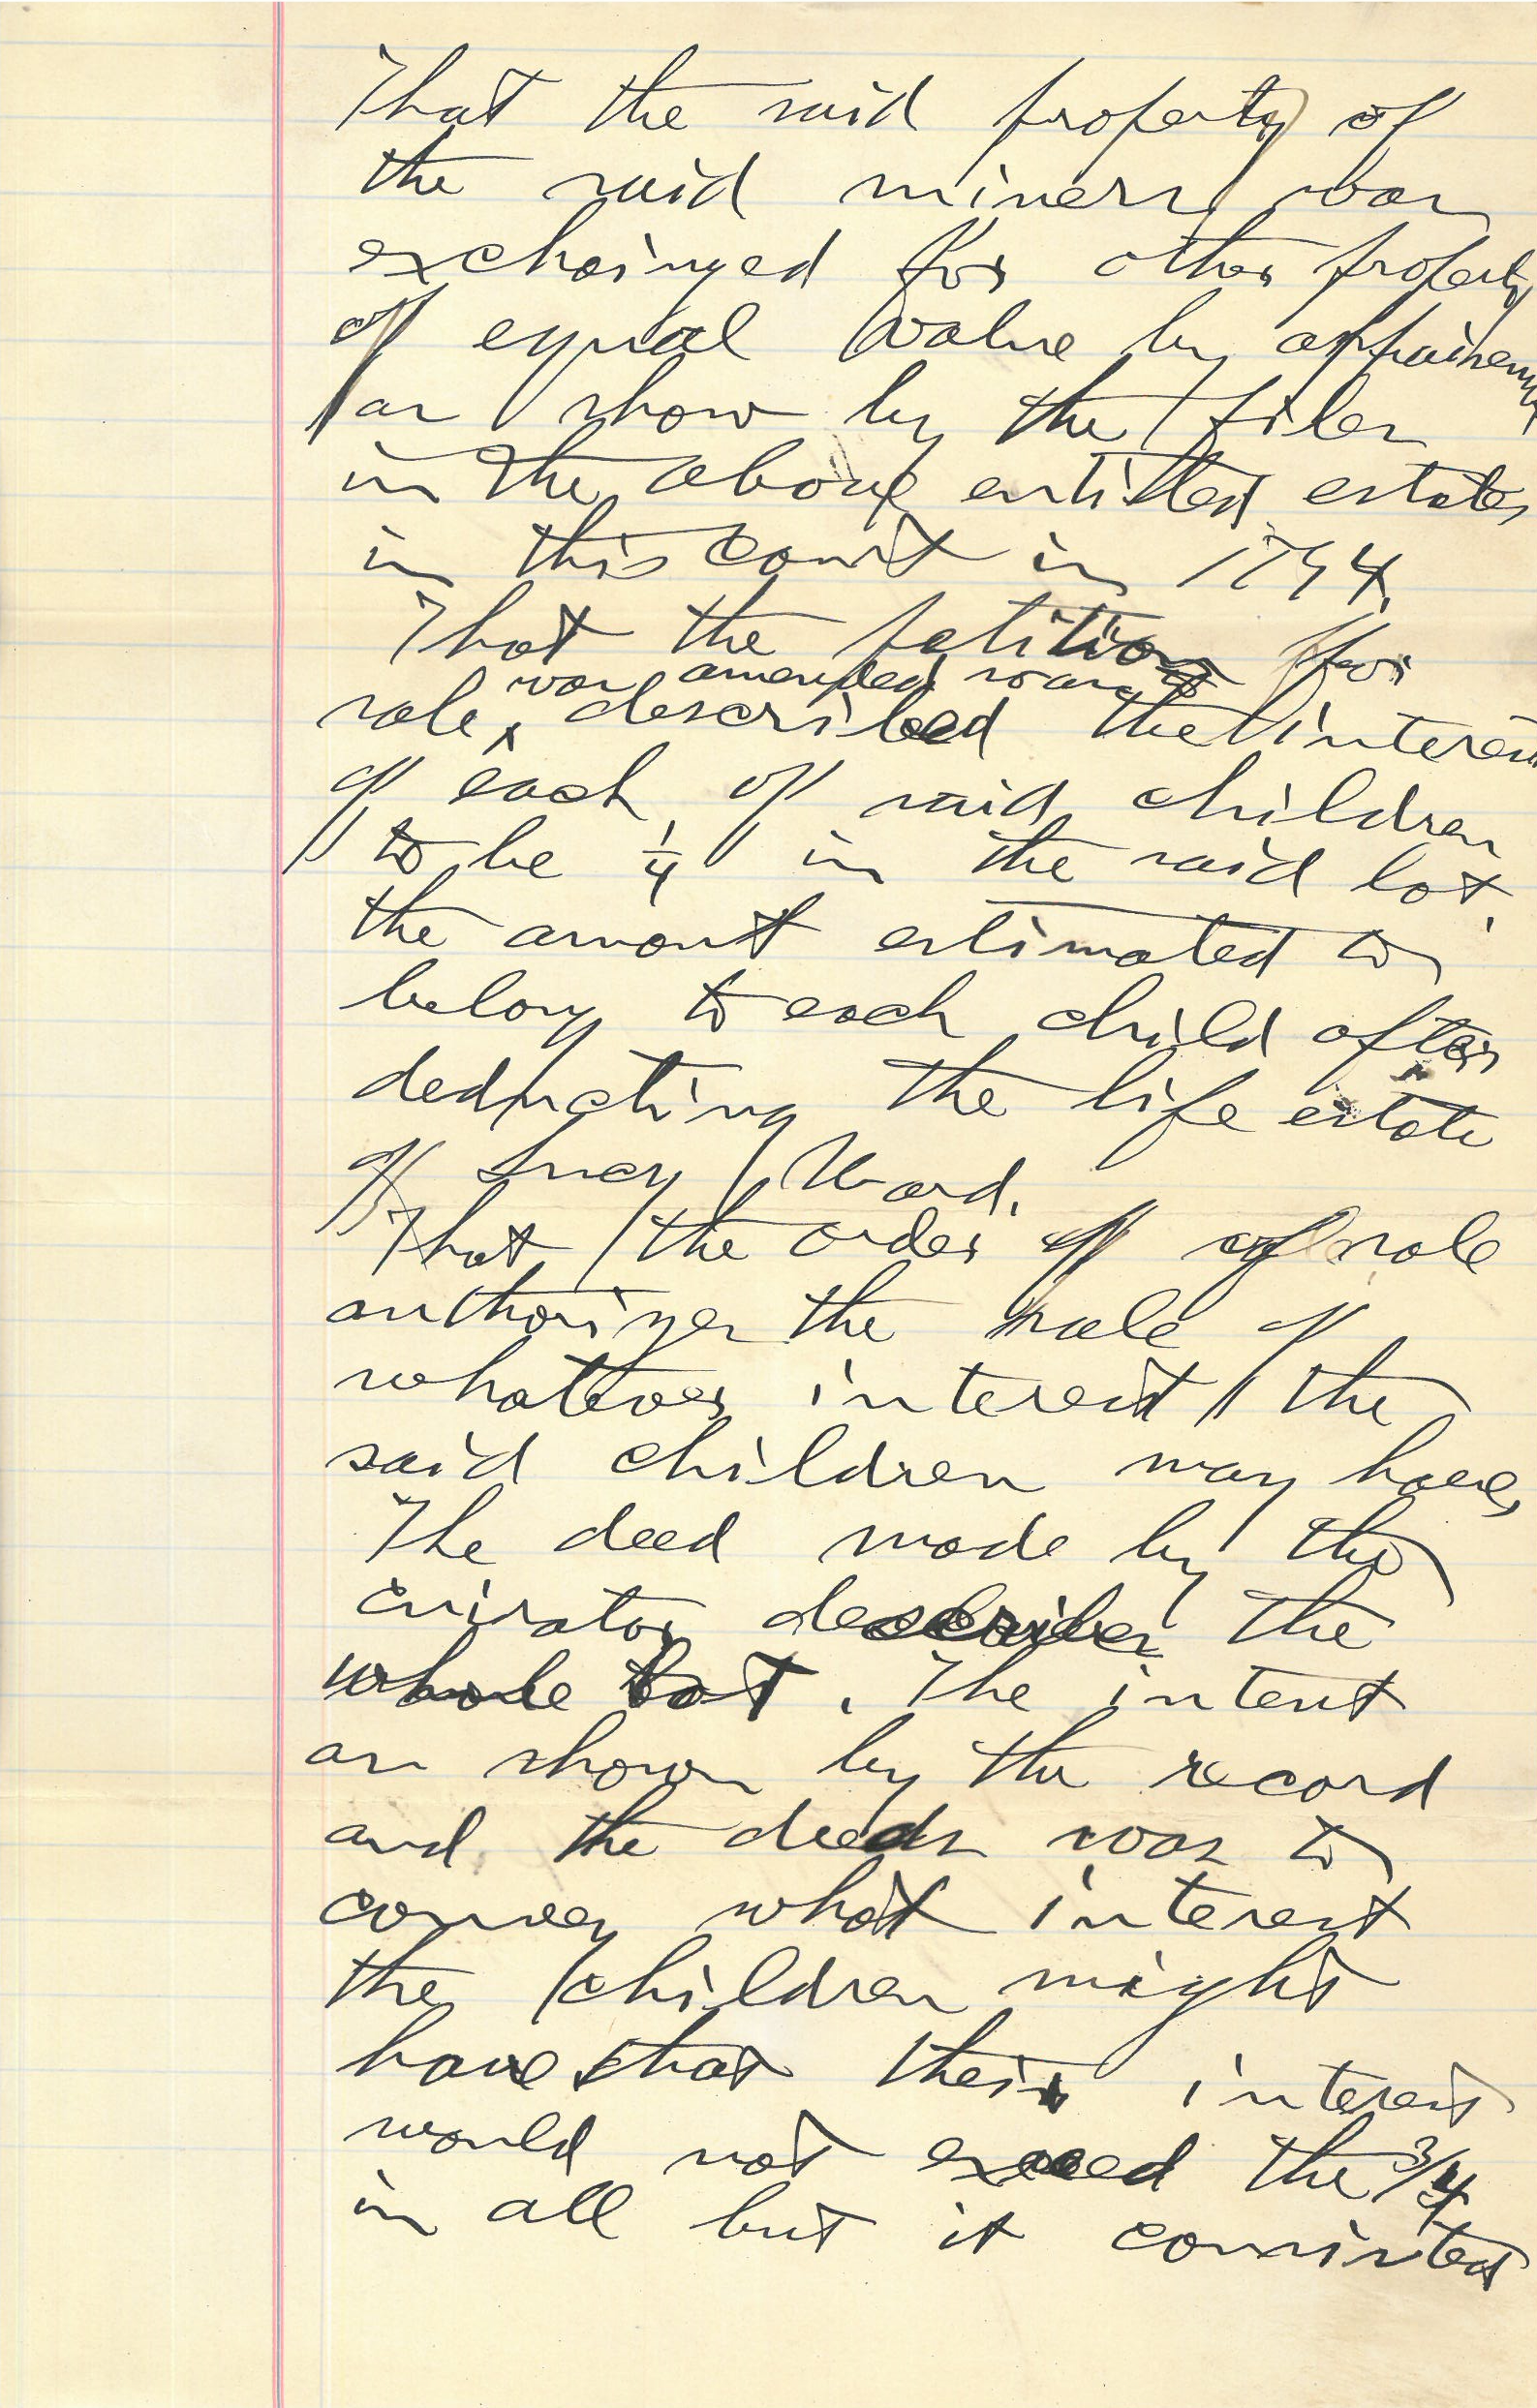 That the said property of
the said minors was
exchainged for other property
of equal value by appraisement
as show by the files
in the above entitled estates
in this court in
That the petition for
was amended was
sale, described the interest
of each of said children
to be 1/4 in the said lot.
the amont estimated to
belong to each child after
deducting the life estate
of Lucy Ward.
That the order of of sale
authorizes the sale of
whatever interest the
said children may have,
The deed made by the
curator describes the
whole lot. The intent
as shown by the record
and the deeds was to
convey what interest
the children might
have that their interest
would not exceed the 3/4
in all but it consisted